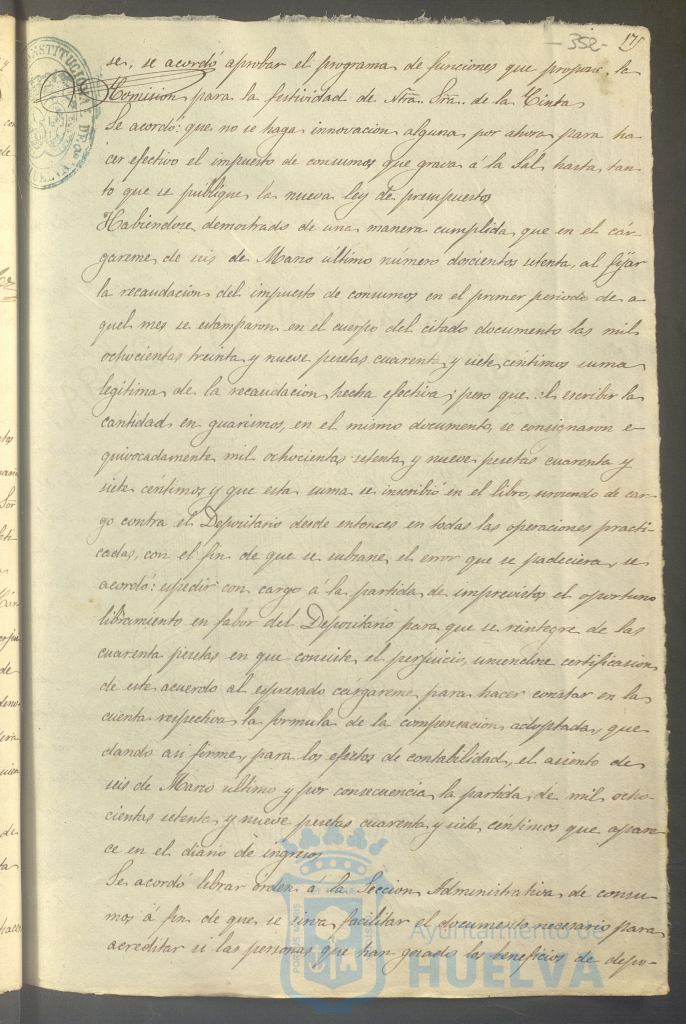 -352- 175
se, se acordó aprobar el programa de funciones que propone la
Comision para la festividad de Ntra. Sra. de la Cinta
Se acordó: que no se haga innovacion alguna por ahora para ha
cer efectivo el impuesto de consumos que grava á la Sal hasta tan
to que se publique la nueva ley de presupuestos
Habiendose demostrado de una manera cumplida que en el cár-
gareme de seis de Marzo último número doscientos setenta, al fijar
la recaudacion del impuesto de consumos en el primer periodo de a
quel mes se estamparon en el cuerpo del citado documento las mil
ochocientas treinta y nueve pesetas cuarenta y siete céntimos suma
legitima de la recaudacion hecha efectiva; pero que al escribir la
cantidad en guarismos, en el mismo documento, se consignaron e-
quivocadamente mil ochocientas setenta y nueve pesetas cuarenta y
siete céntimos y que esta suma se inscribió en el libro, sirviendo de car-
go contra el Depositario desde entonces en todas las operaciones practi
cadas, con el fin de que se subsane el error que se padeciera, se
acordó: espedir con cargo á la partida de imprevistos el oportuno
libramiento en fabor del Depositario para que se reintegre de las
cuarenta pesetas en que consiste el perjuicio, uniendose certificasion
de este acuerdo al espresado cárgareme para hacer constar en la
cuenta respectiva la formula de la compensacion adoptada, que
dando asi firme, para los efectos de contabilidad, el asiento de
seis de Marzo ultimo y por consecuencia la partida de mil ocho-
cientas setenta y nueve pesetas cuarenta y siete céntimos que apare
ce en el diario de ingresos
Se acordó librar orden á la Seccion Administrativa de consu-
mos á fin de que se sirva facilitar el documento necesario para
acreditar si las personas que han gozado los beneficios de depo-
Ayuntamiento de
HUELVA